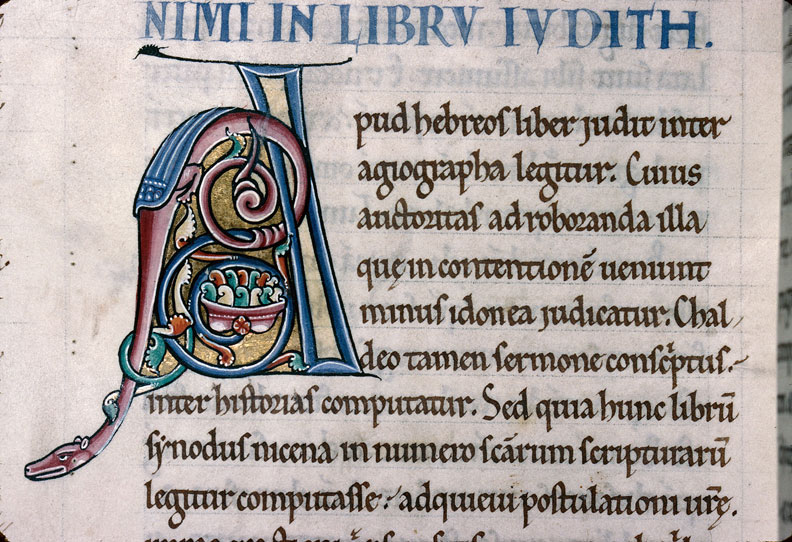 NIMI IN LIBRV IVDITH.
Apud hebreos liber judit inter
agiographa legitur. Cuius
auctoritas ad roboranda illa
quę in contentionē ueniunt
minus idonea judicatur. Chal
deo tamen sermone conscͥptus.
inter historias computatur. Sed quia hunc librū
synodus nicena in numero scārum scripturarū
legitur computasse. adquieui postulationi urę̄.